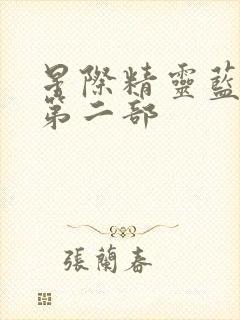 星際精靈藍
第二部
張蘭春